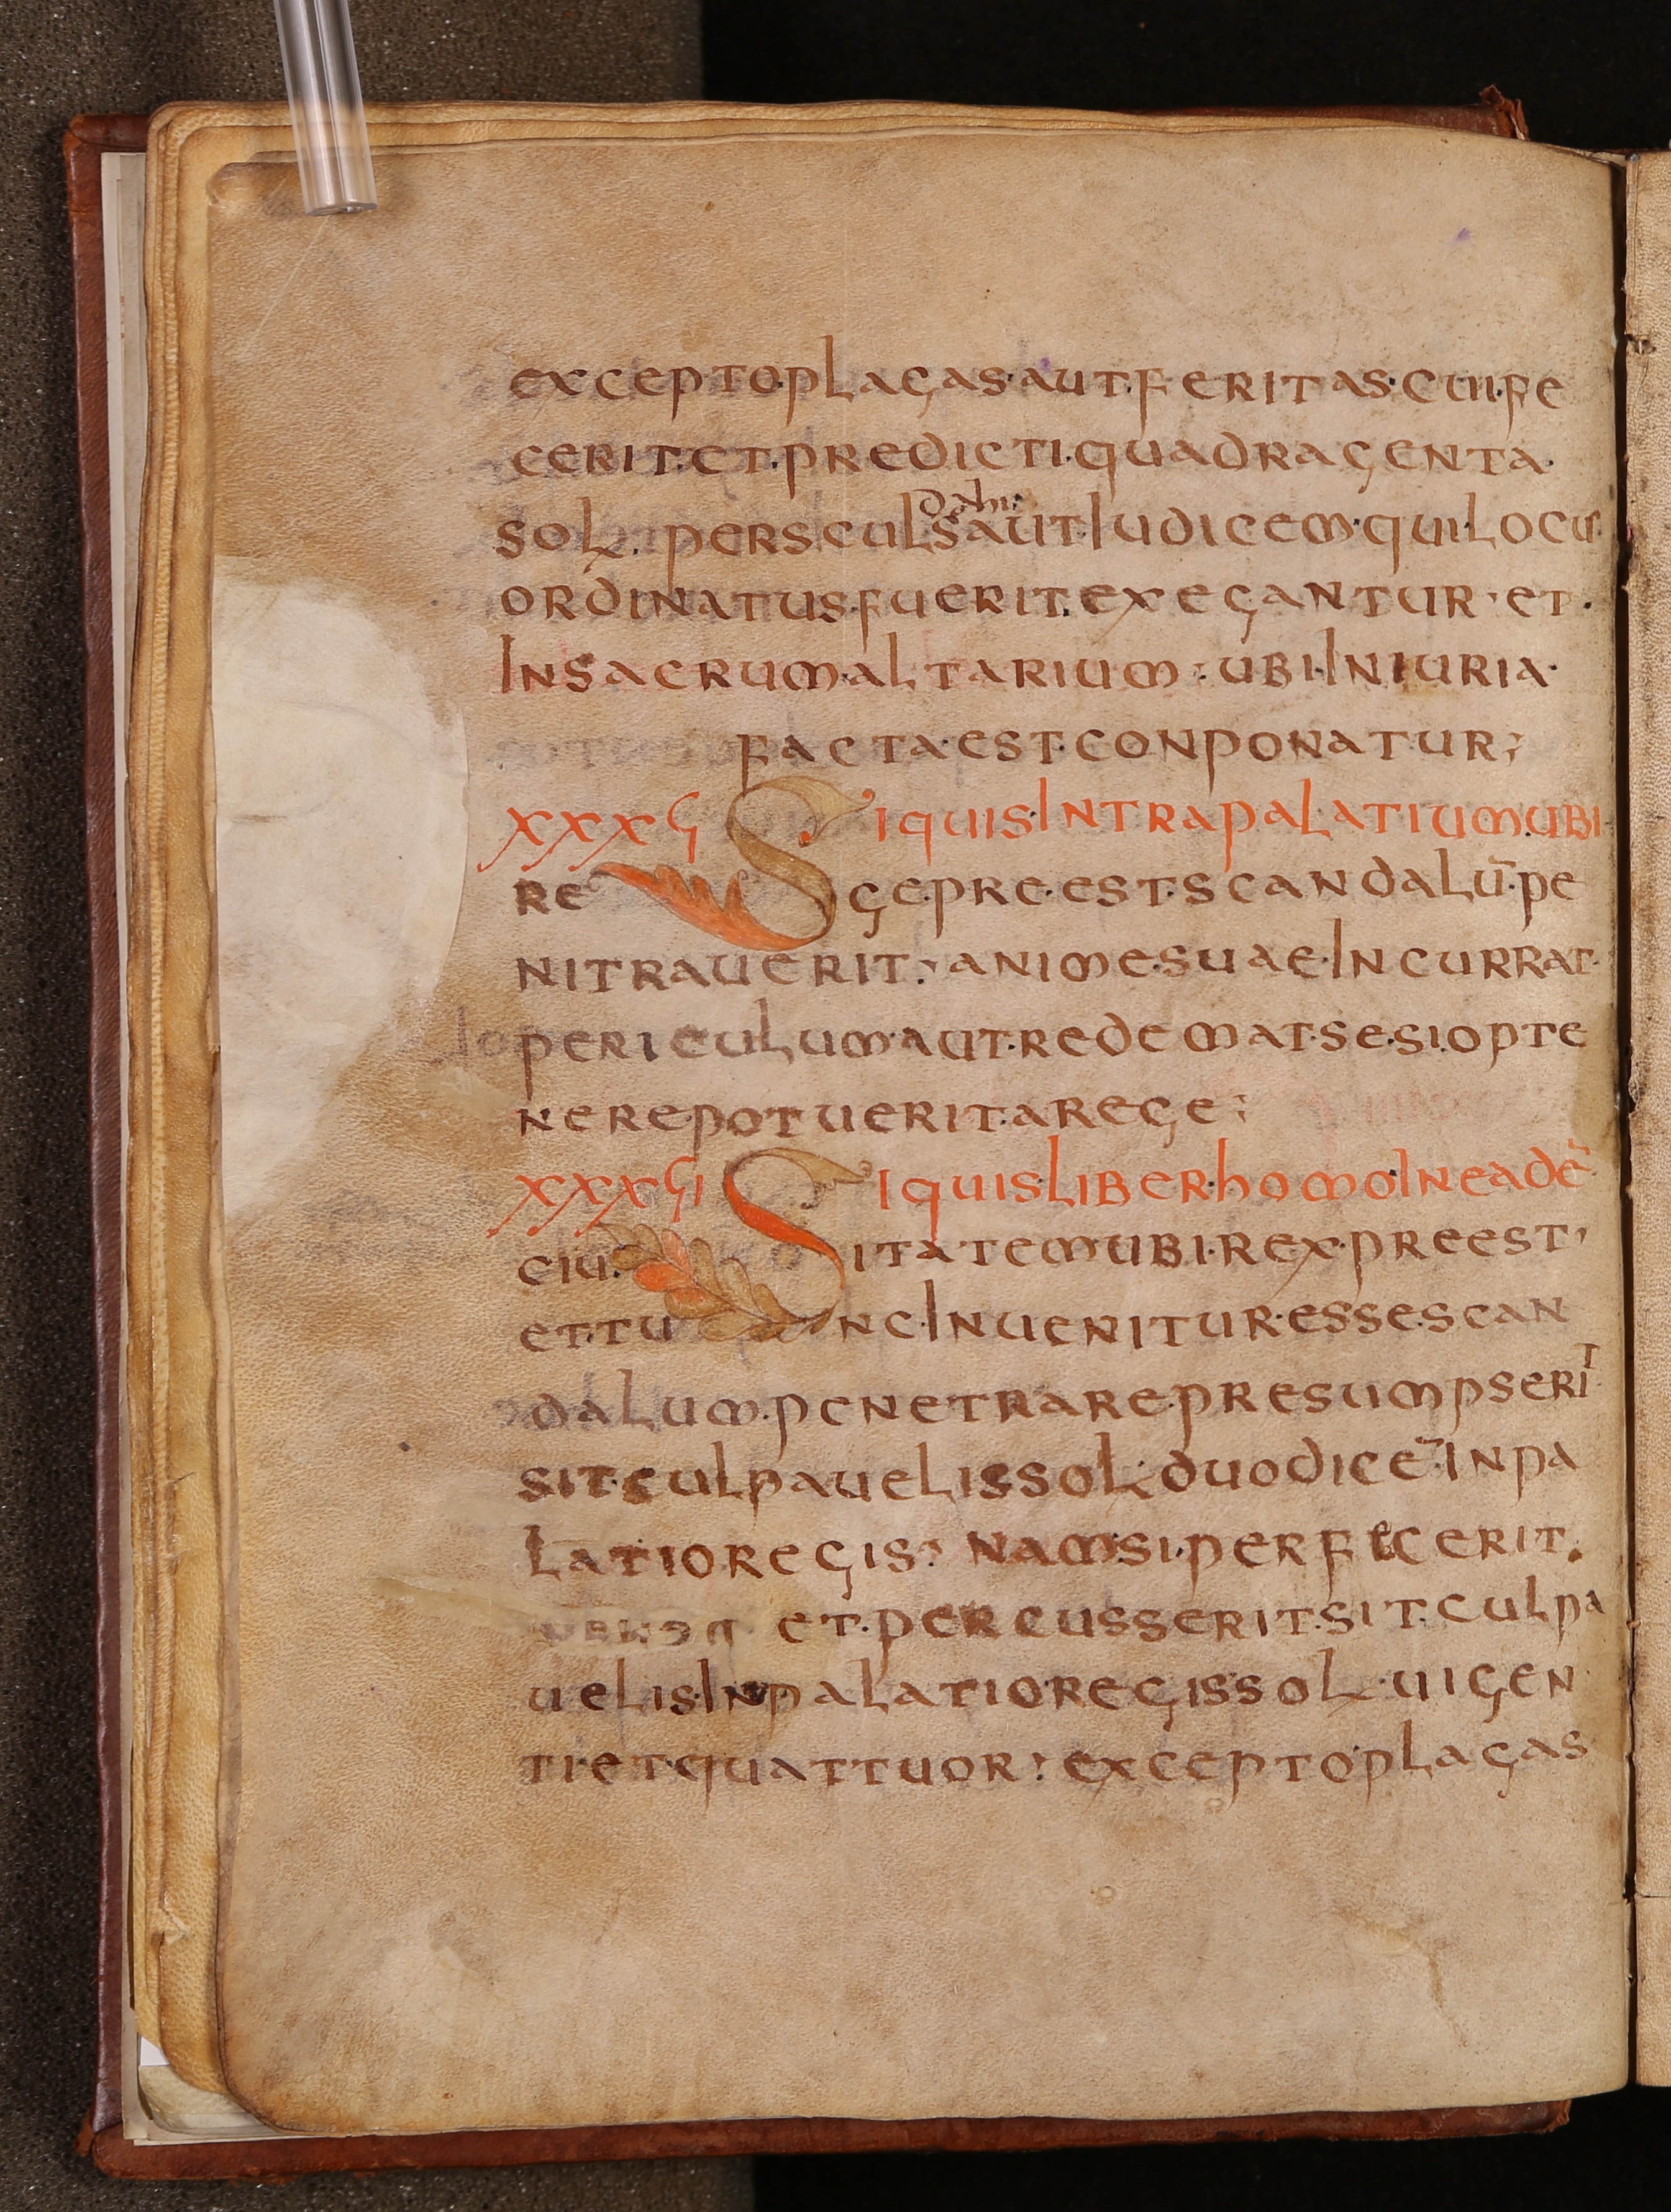 exceptoplagas·aut·feritas·cui·fe
cerit·et·predicti·quadragenta·
sol. persculdahis
aut iudicem·qui·locus
ordinatus·fuerit·exegantur·et·
insacrum·altarium·ubi·iniuria·
facta·est·conponatur;
xxxϛ Siquis·intrapalatium·ubi
regepre·est·scandalū·pe
nitrauerit·animesuae·incurrat·
periculum·aut·redemat·se·si·opte
nere·potuerit·arege;
xxxϛi Siquis·liber·homo·ineadē
ciuitatem·ubi·rex·preest·
et·tunc·inuenitur·esse·scan
dalum·penetrare·presumpserit
sit·culpauelis sol·duodicē·inpa
latioregis· nam·si·perfecerit·
et·percusserit·sit·culpa
uelis·inpalatioregis sol·uigen
ti·et quattuor· exceptoplagas